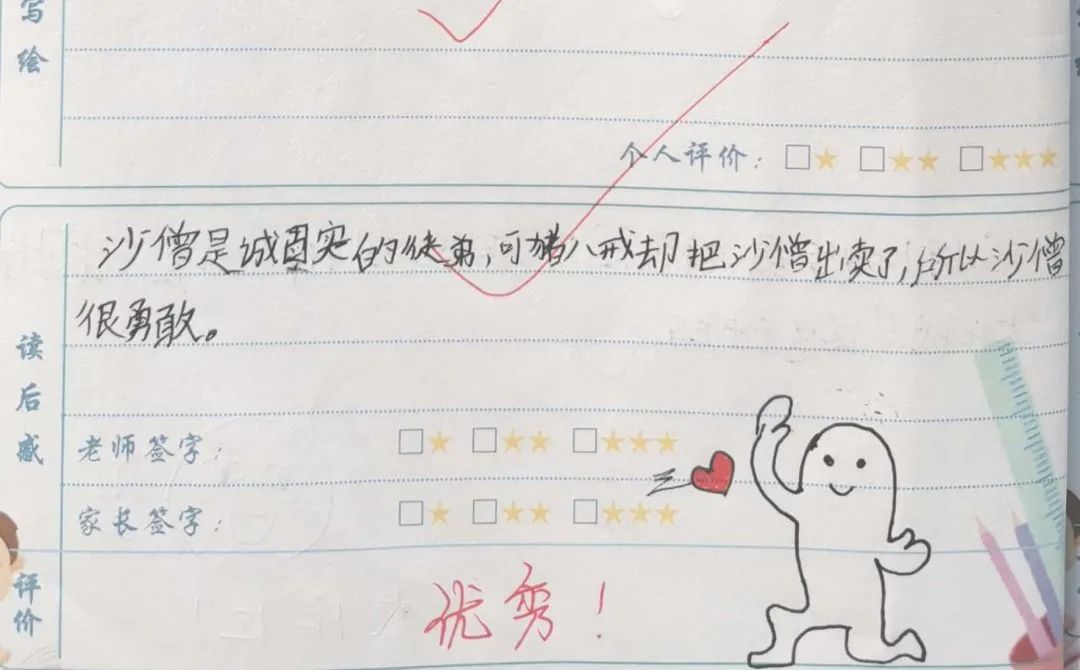 写
绘
个人评价：
沙僧是诚固实的徒弟，可猪八戒却把沙僧出卖了，所以沙僧
很勇敢。
读
后
感
老师签字：
家长签字：
评
价
优秀！